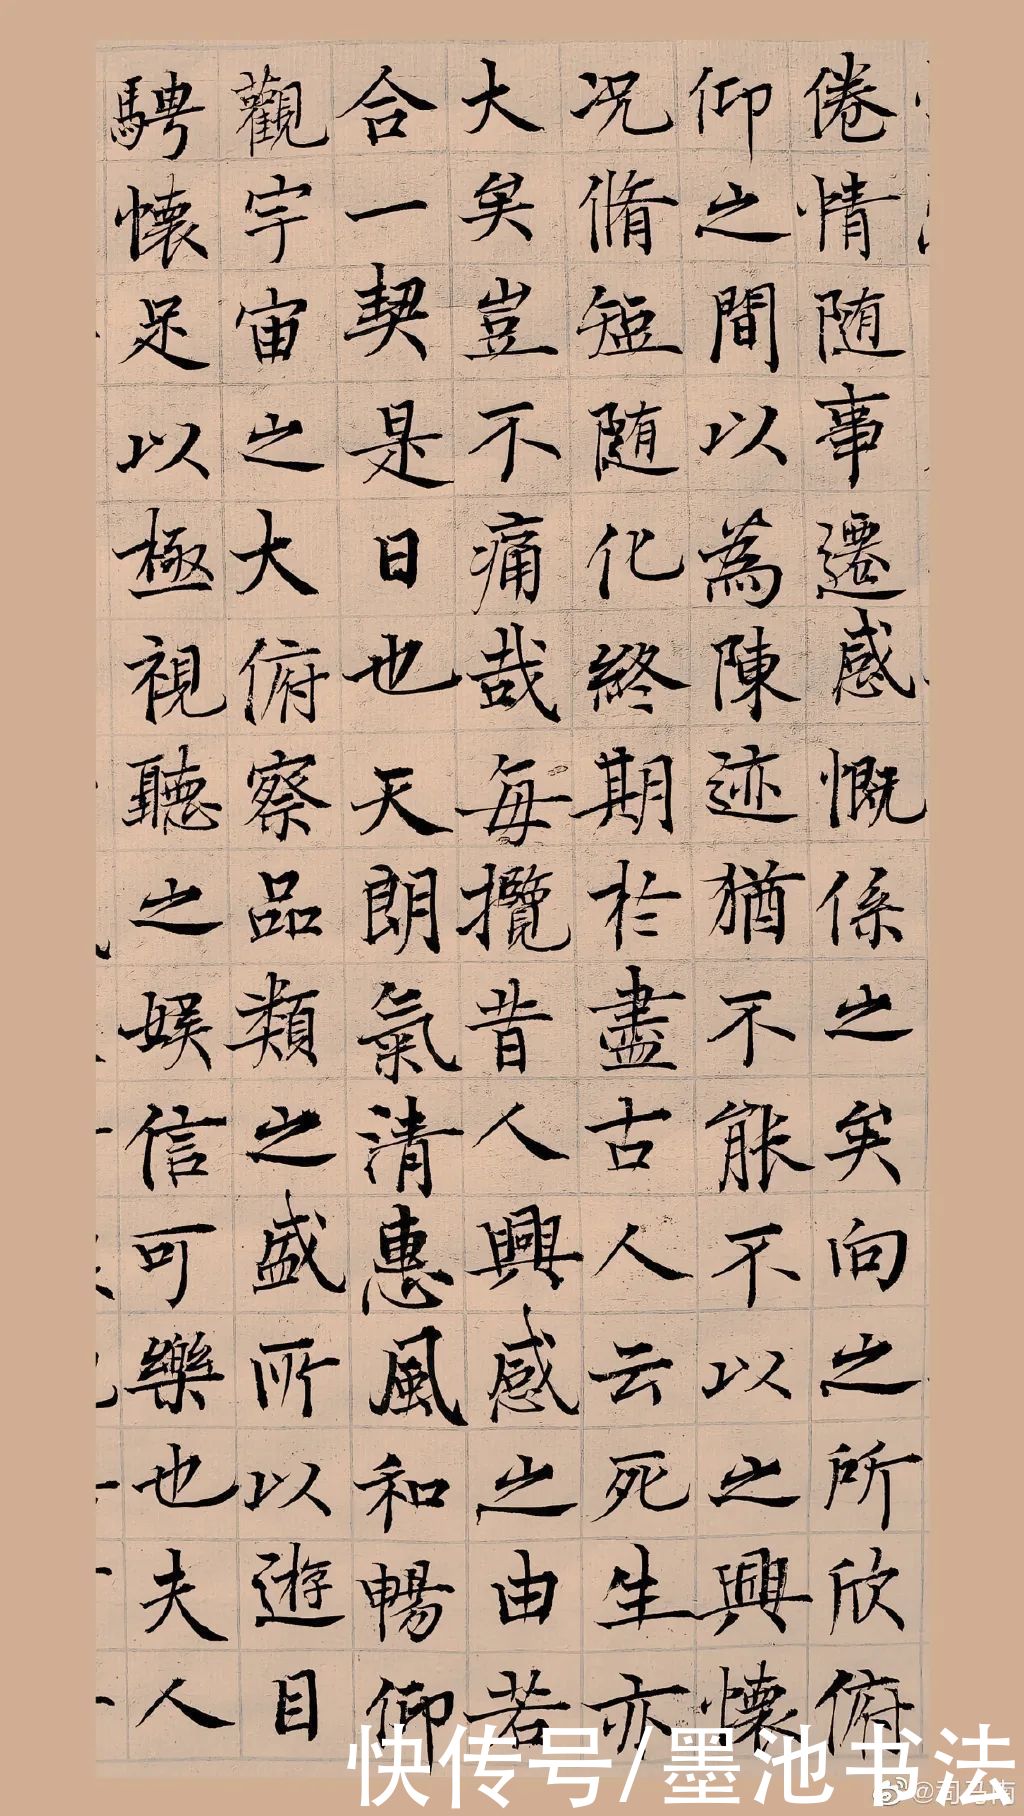 倦情随事遷感慨係之矣向之所欣俯
仰之間以為陳迹猶不能不以之興懷
况脩短随化終期於盡古人云死生亦
大矣豈不痛哉每攬昔人興感之由若
合一契是日也天朗氣清惠風和暢仰
觀宇宙之大俯察品類之盛所以遊目
騁懷足以極視聽之娛信可樂也夫人
快传号/墨池书法
@司马南